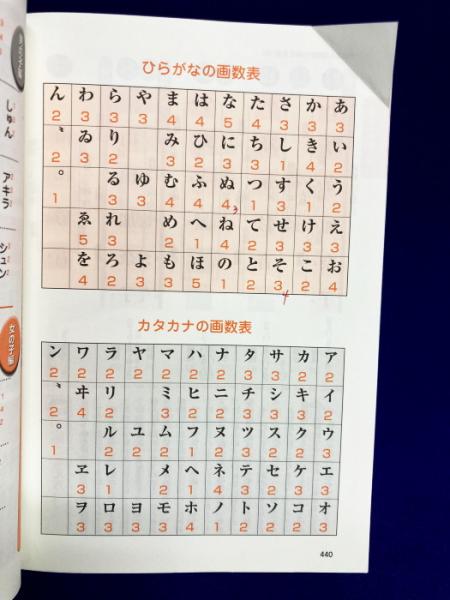 ひらがなの画数表
ん わ ら や ま は な た さ か あ
2 3 3 3 4 4 5 4 3 3 3
゛ ゐ り み ひ に ち し き い
2 3 2 3 2 3 3 1 4 2
゜ る ゆ む ふ ぬ つ す く う
1 3 3 4 4 4 3 1 3 1 2
ゑ れ め へ ね て せ け え
5 3 2 1 4 2 3 3 3
を ろ よ も ほ の と そ こ お
4 2 3 3 5 1 2 3 2 4
4
カタカナの画数表
ン ワ ラ ヤ マ ハ ナ タ サ カ ア
2 2 2 2 2 2 2 3 3 2 2
゛ ヰ リ ミ ヒ ニ チ シ キ イ
2 4 2 3 2 2 3 3 3 2
゜ ル ユ ム フ ヌ ツ ス ク ウ
1 2 2 2 1 2 3 2 2 3
ヱ レ メ ヘ ネ テ セ ケ エ
3 1 2 1 4 3 2 3 3
ヲ ロ ヨ モ ホ ノ ト ソ コ オ
3 3 3 3 4 1 2 2 2 3
440
しゅん
アキラ
シュン
女の子編